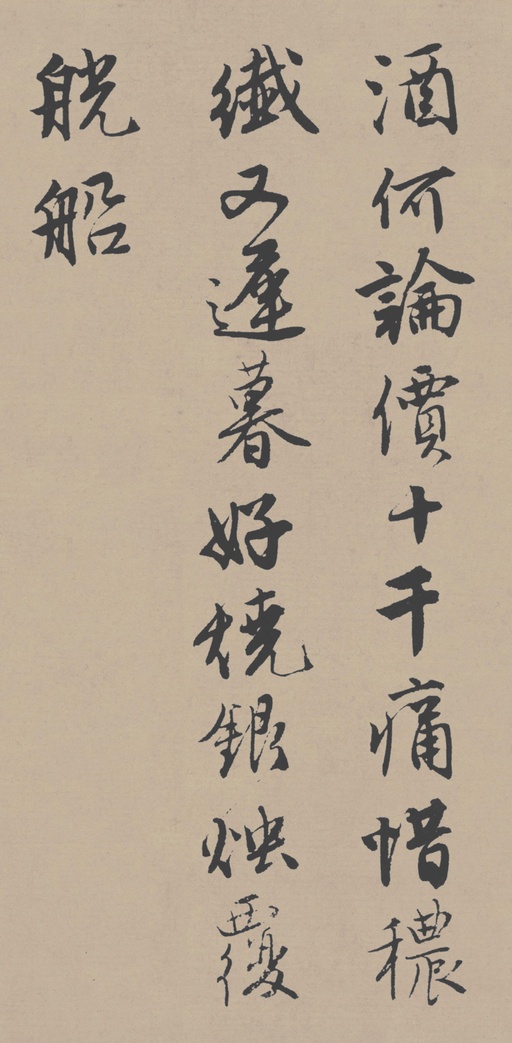 酒何論價十千痛惜穠
纖又遲暮好燒銀燭覆
觥船